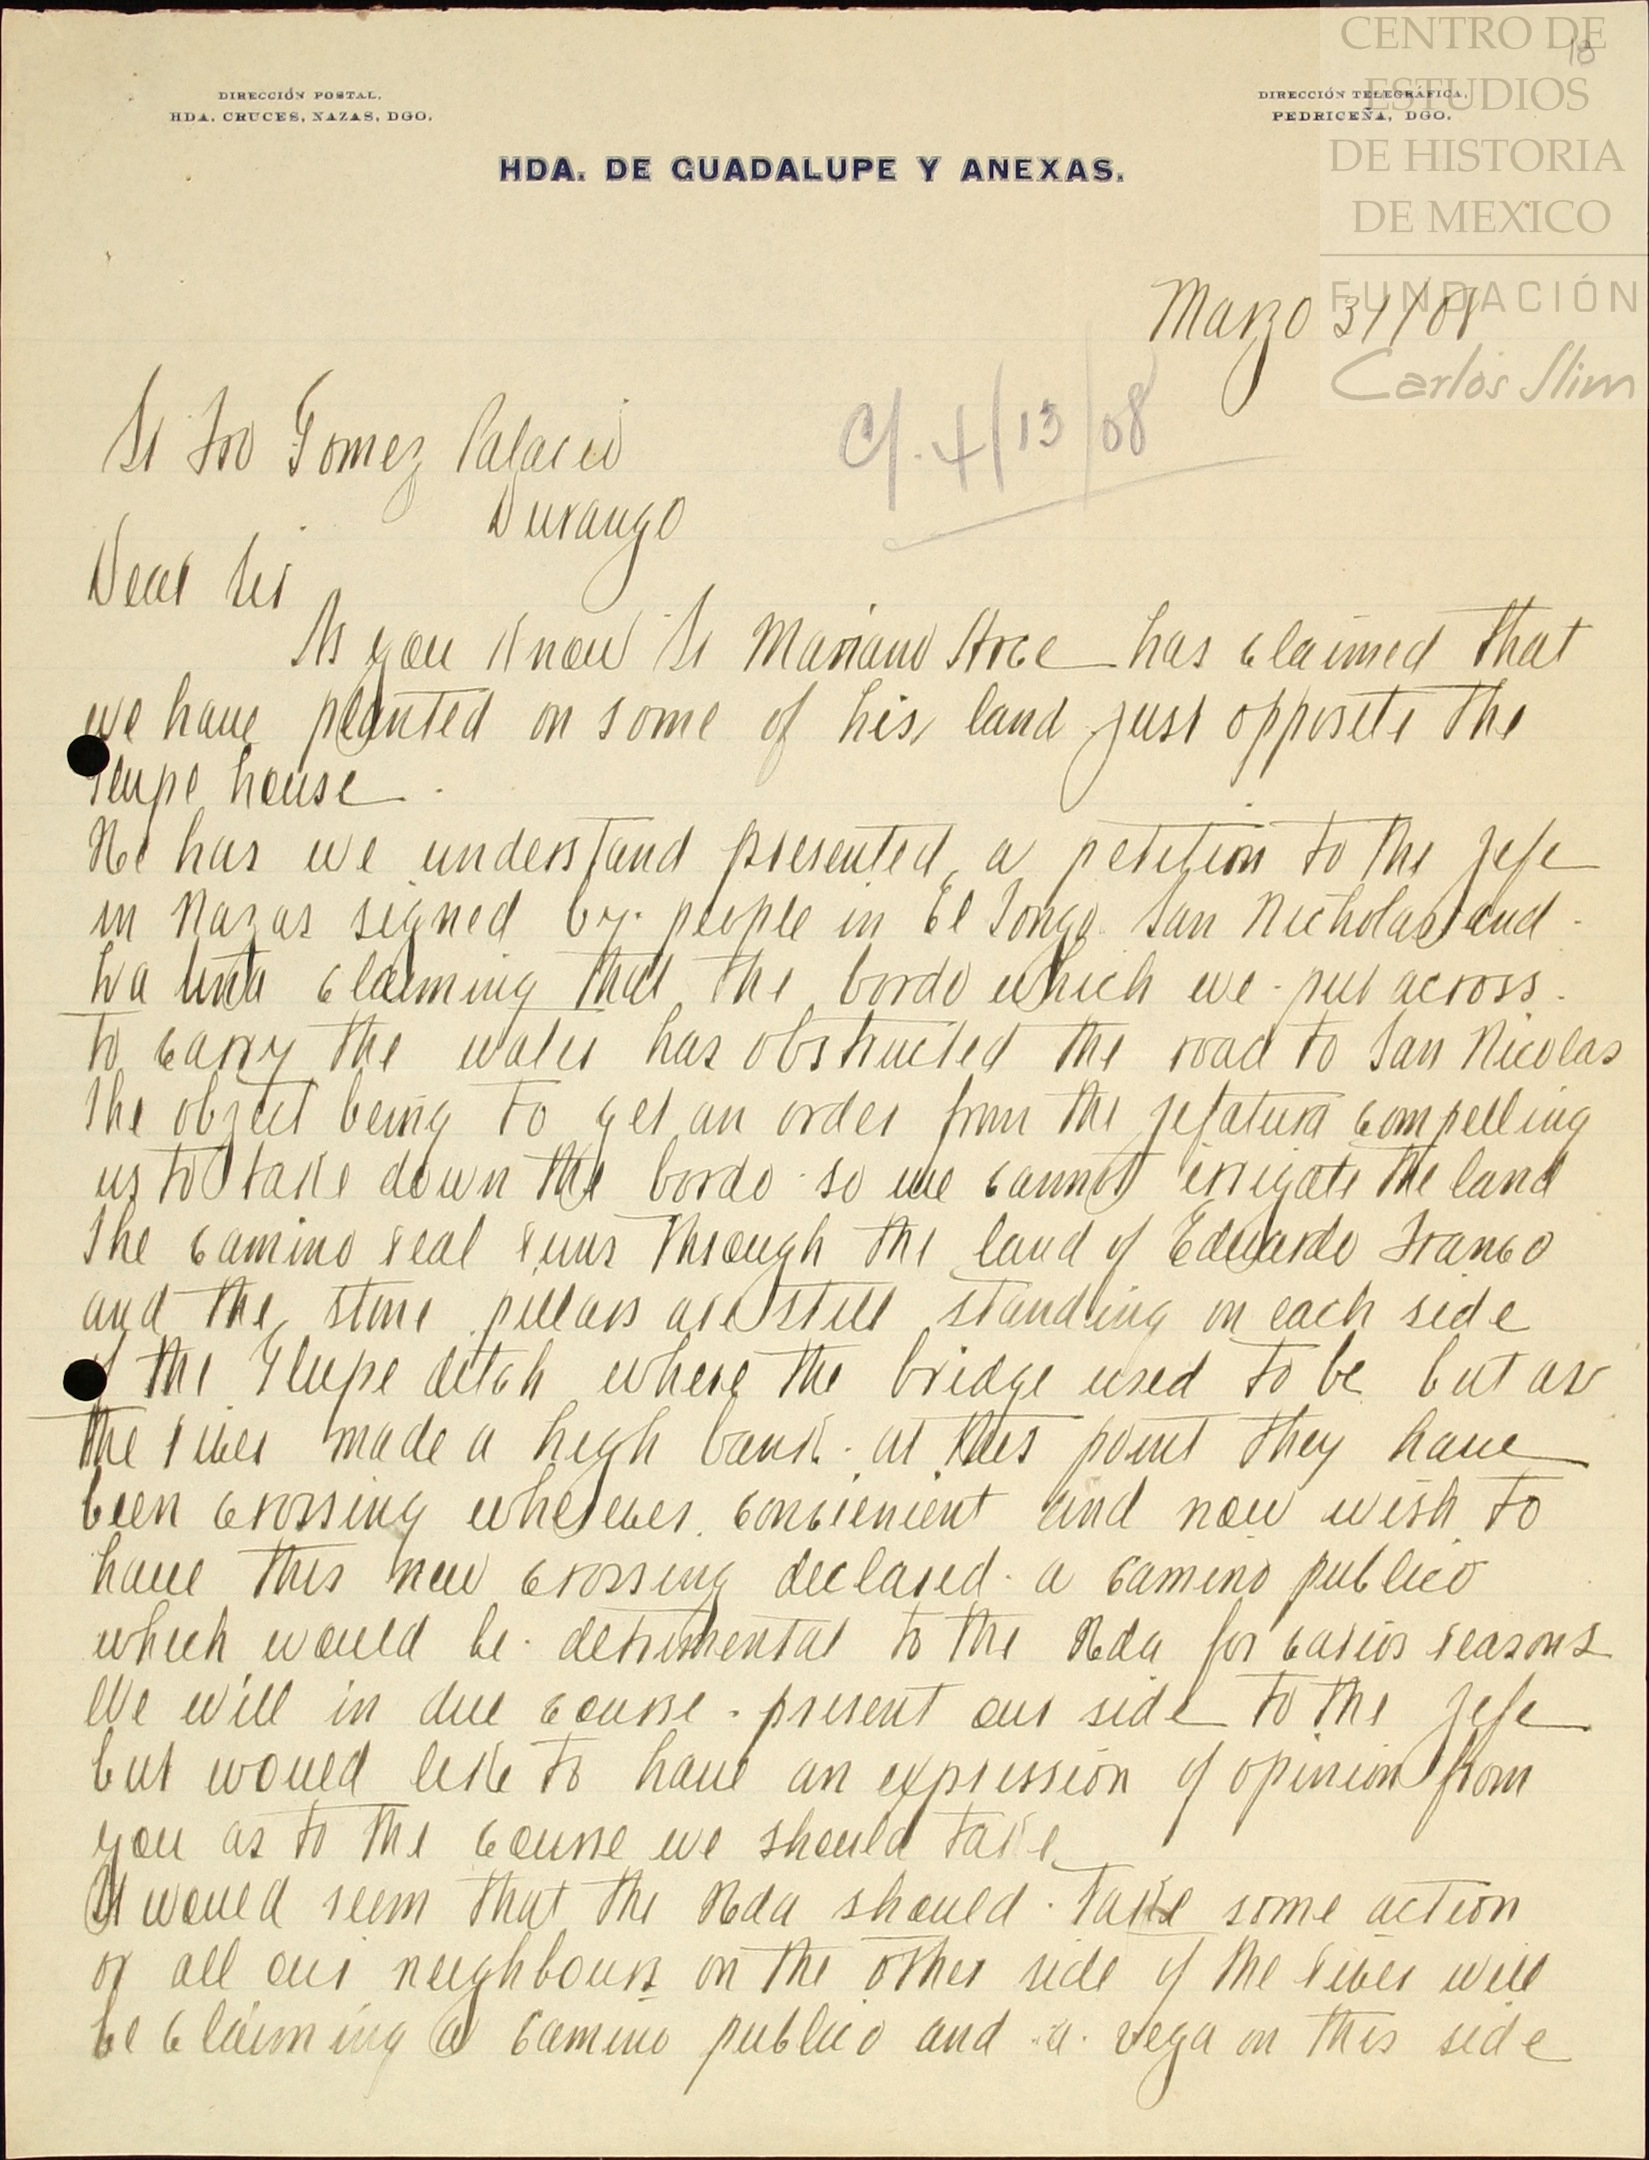 CENTRO DE
ESTUDIOS
DE HISTORIA
DE MEXICO
FUNDACIÓN
Carlos Slim
18
DIRECCIÓN POSTAL,
HDA. CRUCES, NAZAS, DGO.
DIRECCIÓN TELEGRÁFICA,
PEDRICEÑA, DGO.
HDA. DE GUADALUPE Y ANEXAS.
Marzo 31/08
Sr Fco Gomez Palacio
C/. 4/13/08
Durango
Dear Sir
As you know Sr Mariano Arce has claimed that
we have planted on some of his land just opposite the
Glupe house.
He has we understand presented a petition to the jefe
in Nazas signed by people in El Longo San Nicholas and
La Uña claiming that the bordo which we put across
to carry the water has obstructed the road to San Nicolas
The object being to get an order from the jefatura compelling
us to take down the bordo so we cannot irrigate the land
The camino real runs through the land of Eduardo Franco
and the stone pillars are still standing on each side
of the Glupe ditch where the bridge used to be but as
the river made a high bank at this point they have
been crossing wherever convienient and now wish to
have this new crossing declared a camino publico
which would be detrimental to the Hda for varios reasons
We will in due course present our side to the jefe
but would like to have an expression of opinion from
you as to the course we should take
It would seem that the Hda should take some action
or all our neighbours on the other side of the river will
be claiming a camino publico and a vega on this side